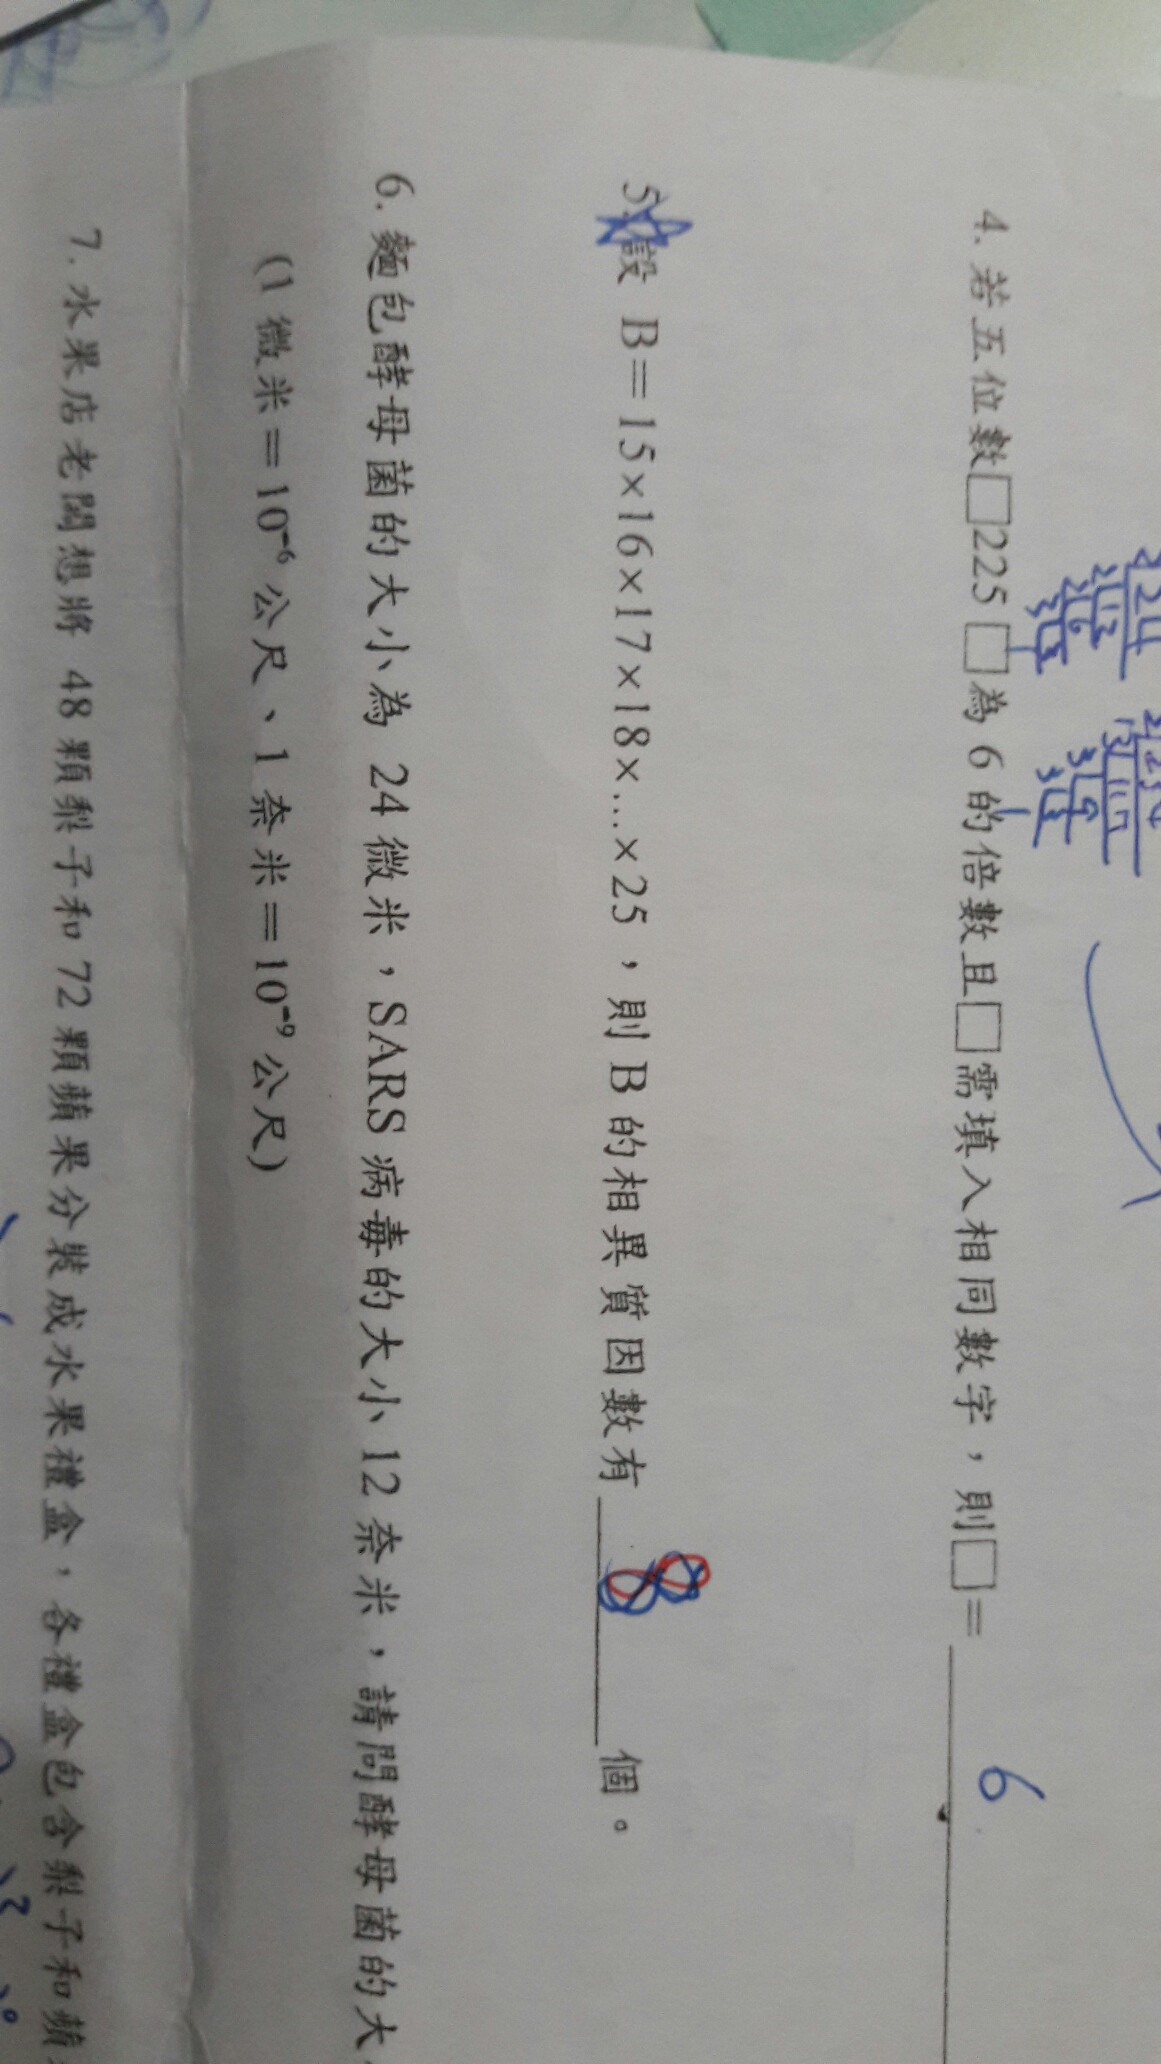 4. 若五位數□225□為 6 的倍數且□需填入相同數字，則□= 6
5. 設 B=15×16×17×18×…×25，則 B 的相異質因數有 8 個。
6. 麵包酵母菌的大小為 24 微米，SARS 病毒的大小 12 奈米，請問酵母菌的大
(1 微米＝10⁻⁶ 公尺、1 奈米＝10⁻⁹ 公尺)
7. 水果店老闆想將 48 顆梨子和 72 顆蘋果分裝成水果禮盒，各禮盒包含梨子和蘋